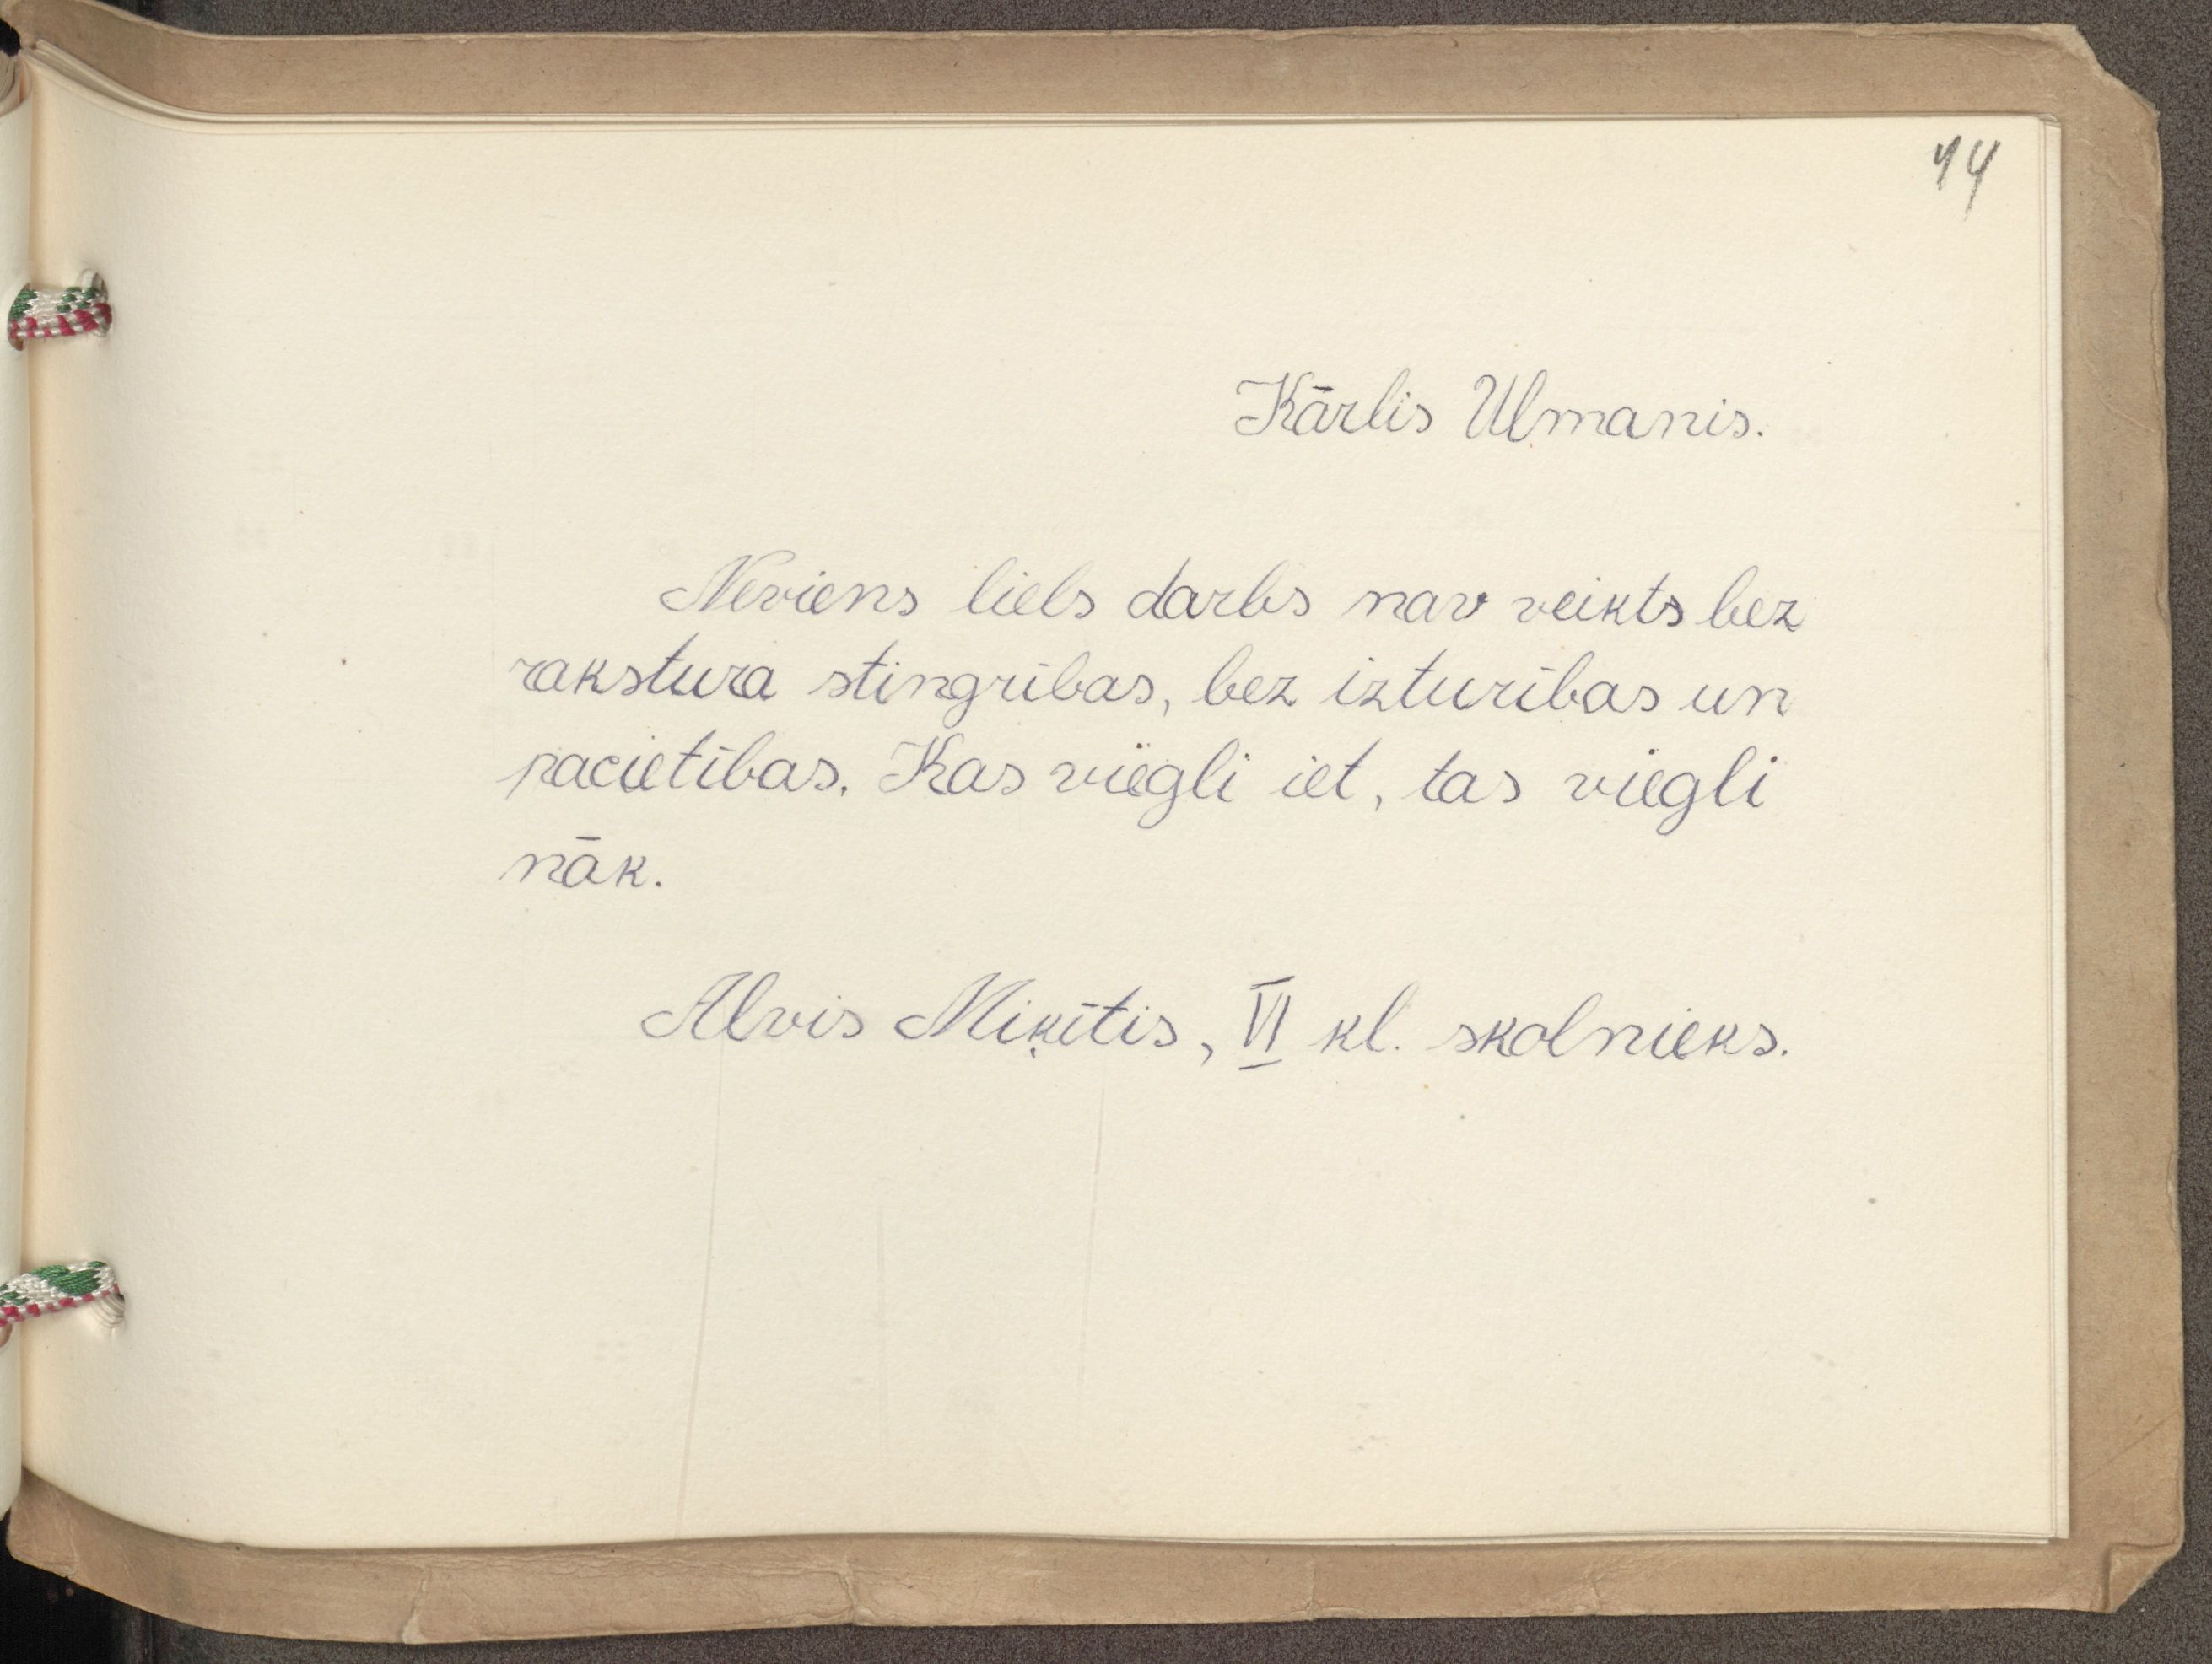 44
Kārlis Ulmanis.
Neviens liels darbs nav veikts bez
rakstura stingrības, bez izturības un
pacietības. Kas viegli iet, tas viegli
nāk.
Alvis Miķītis, VI kl. skolnieks.